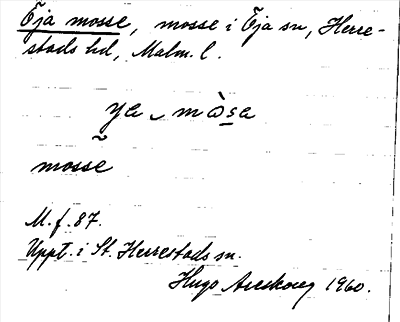 Öja mosse, mosse i Öja sn, Herre-
stads hd, Malm. l.
ya mòsa
mosse
M. f. 87.
Uppt. i St. Herrestads sn.
Hugo Areskoug 1960.